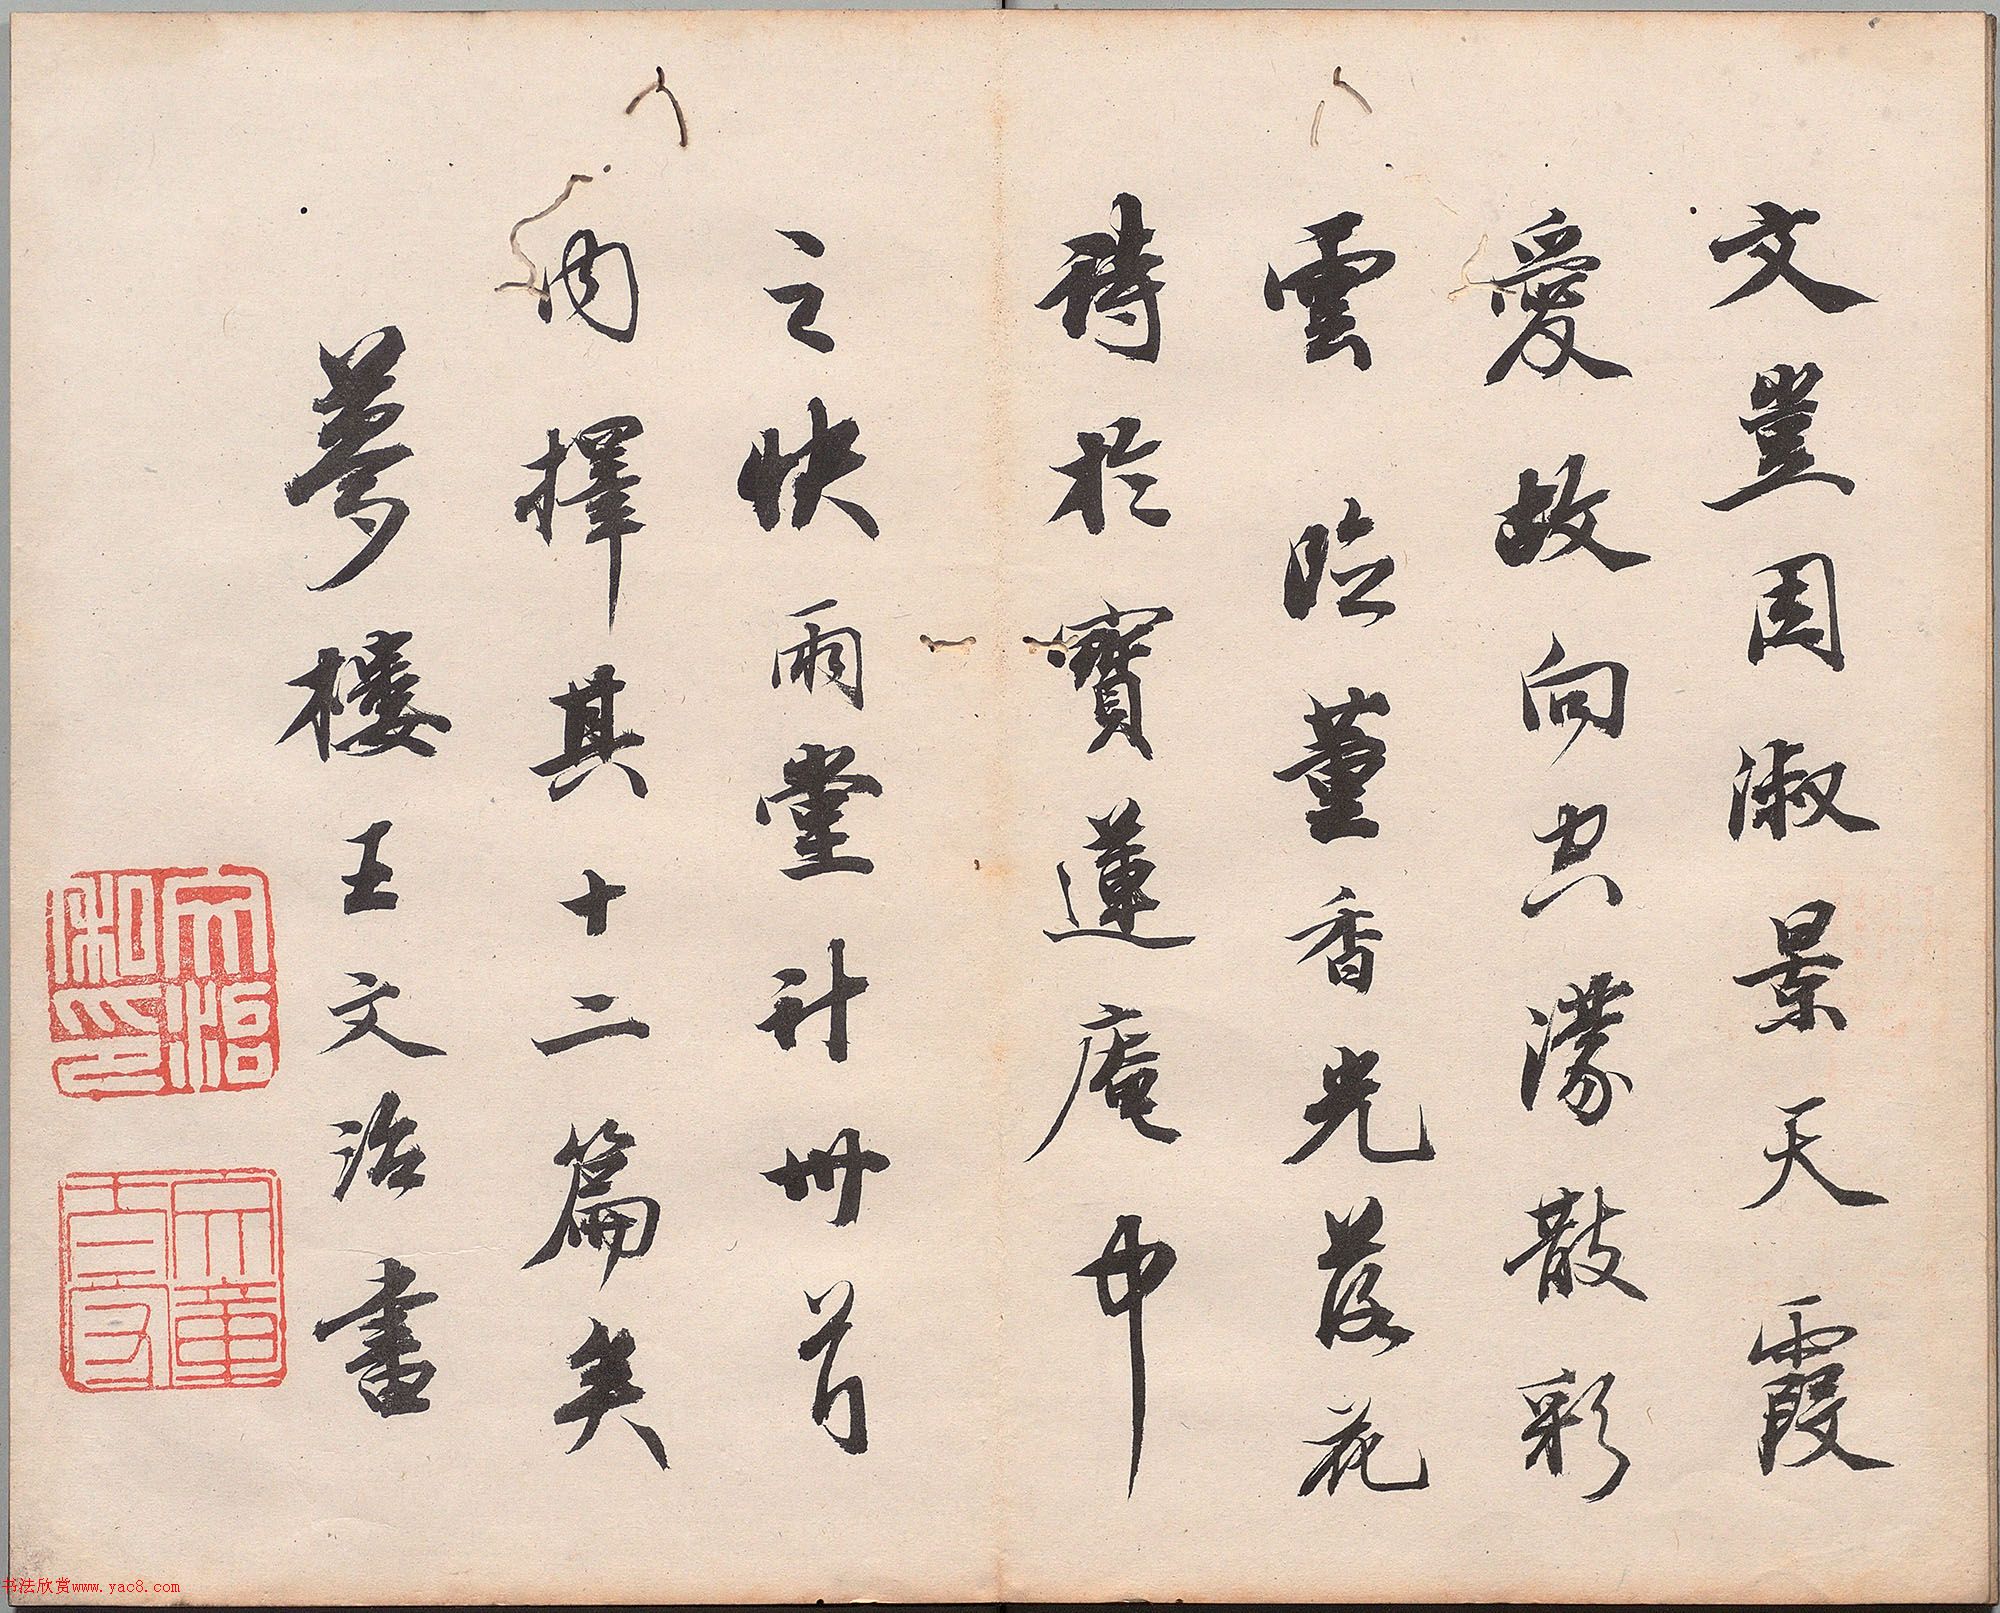 文豈因淑景天霞
愛故向空濛散彩
雲 臨董香光落花
詩於寶蓮庵中
之快雨堂計卅首
內擇其十二篇矣
夢樓王文治書
文治私印
文章太守
书法欣赏www.yac8.com